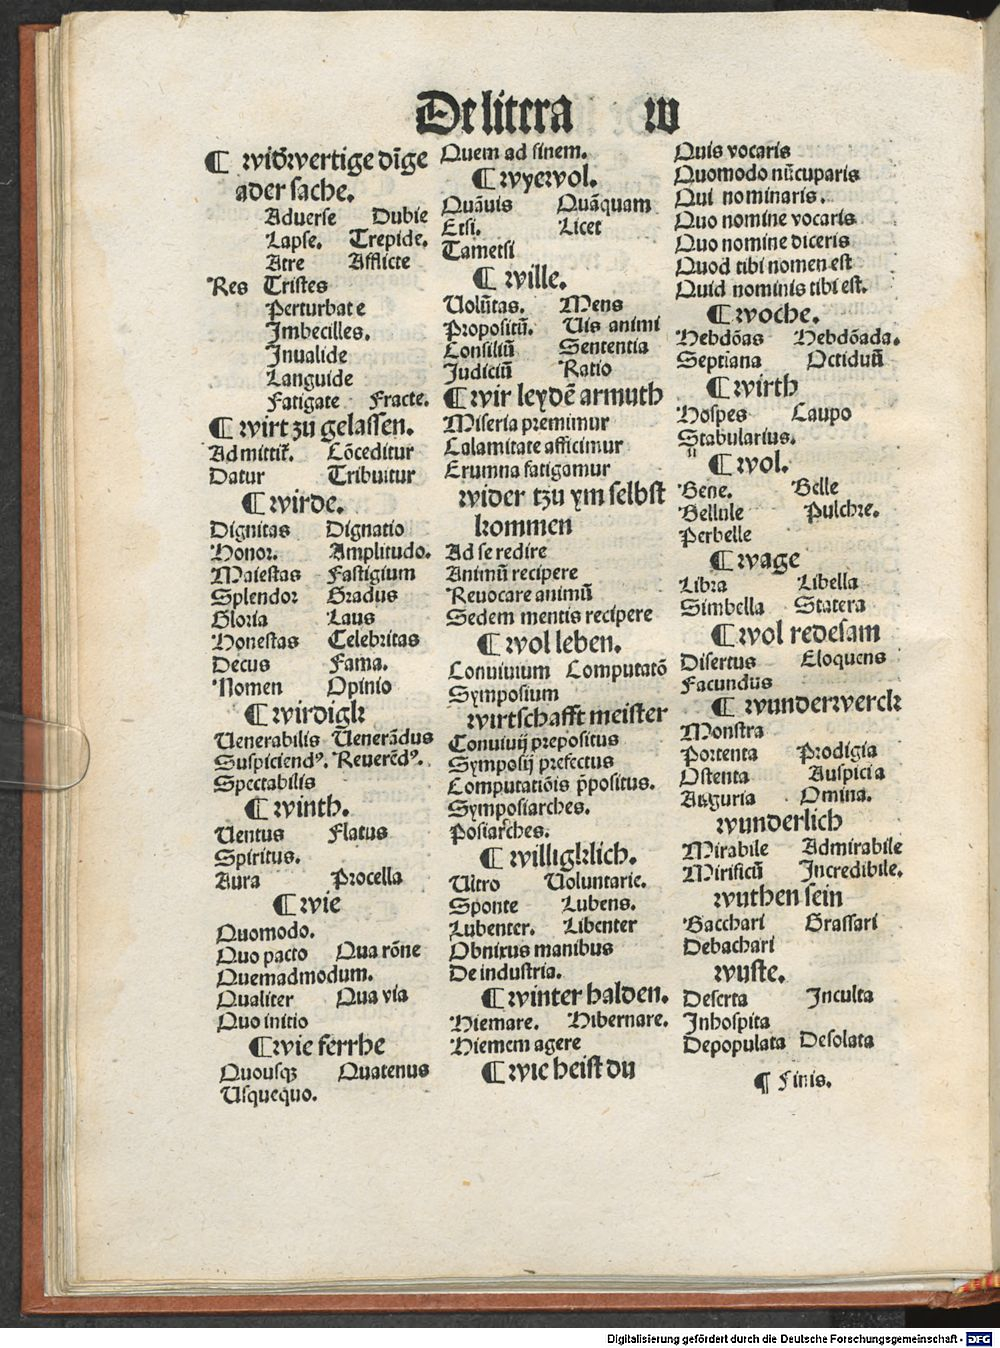 De litera w
¶ widerwertige dīge
ader sache.
Aduerse Dubie
Lapse. Trepide.
Atre Afflicte
Res Tristes
Perturbate
Imbecilles.
Inualide
Languide
Fatigate Fracte.
¶ wirt zu gelassen.
Admittit᷑. Cōceditur
Datur Tribuitur
¶ wirde.
Dignitas Dignatio
Honor. Amplitudo.
Maiestas Fastigium
Splendor Gradus
Gloria Laus
Honestas Celebritas
Decus Fama.
Nomen Opinio
¶ wirdigk
Uenerabilis Uenerādus
Suspiciendꝰ. Reuerēdꝰ.
Spectabilis
¶ winth.
Uentus Flatus
Spiritus.
Aura Procella
¶ wie
Quomodo.
Quo pacto Qua rōne
Quemadmodum.
Qualiter Qua via
Quo initio
¶ wie ferrhe
Quousqꝫ Quatenus
Usquequo.
Quem ad finem.
¶ wyewol.
Quāuis Quāquam
Etsi. Licet
Tametsi
¶ wille.
Uolūtas. Mens
Propositū. Uis animi
Consiliū Sententia
Judiciū Ratio
¶ wir leydē armuth
Miseria premimur
Calamitate afficimur
Erumna fatigamur
wider tzu ym selbst
kommen
Ad se redire
Animū recipere
Reuocare animū
Sedem mentis recipere
¶ wol leben.
Conuiuium Computatō
Symposium
wirtschafft meister
Conuiuij prepositus
Symposij prefectus
Computatiōis p̄positus.
Symposiarches.
Posiarches.
¶ willigklich.
Ultro Uoluntarie.
Sponte Lubens.
Lubenter. Libenter
Obnixus manibus
De industria.
¶ winter halden.
Hiemare. Hibernare.
Hiemem agere
¶ wie heist du
Quis vocaris
Quomodo nūcuparis
Qui nominaris.
Quo nomine vocaris
Quo nomine diceris
Quod tibi nomen est
Quid nominis tibi est.
¶ woche.
Hebdōas Hebdōada.
Septiana Octiduū
¶ wirth
Hospes Caupo
Stabularius.
¶ wol.
Bene. Belle
Bellule Pulchre.
Perbelle
¶ wage
Libra Libella
Simbella Statera
¶ wol redesam
Disertus Eloquens
Facundus
¶ wunderwerck
Monstra
Portenta Prodigia
Ostenta Auspicia
Auguria Omina.
wunderlich
Mirabile Admirabile
Mirificū Incredibile.
wuthen sein
Bacchari Grassari
Debachari
wuste.
Deserta Inculta
Inhospita
Depopulata Desolata
¶ Finis.
Digitalisierung gefördert durch die Deutsche Forschungsgemeinschaft - DFG